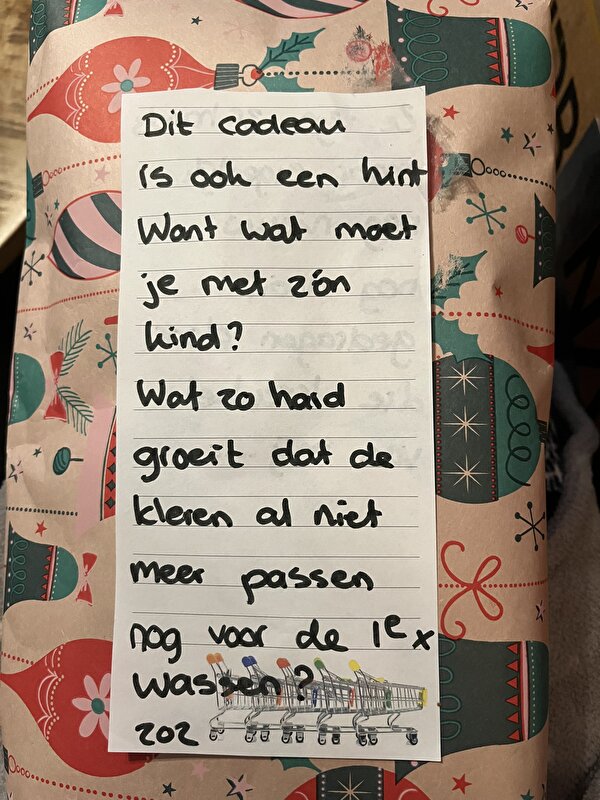 Dit cadeau
is ook een hint
Want wat moet
je met zó'n
kind?
Wat zo hard
groeit dat de
kleren al niet
meer passen
nog voor de 1e x
wassen?
202